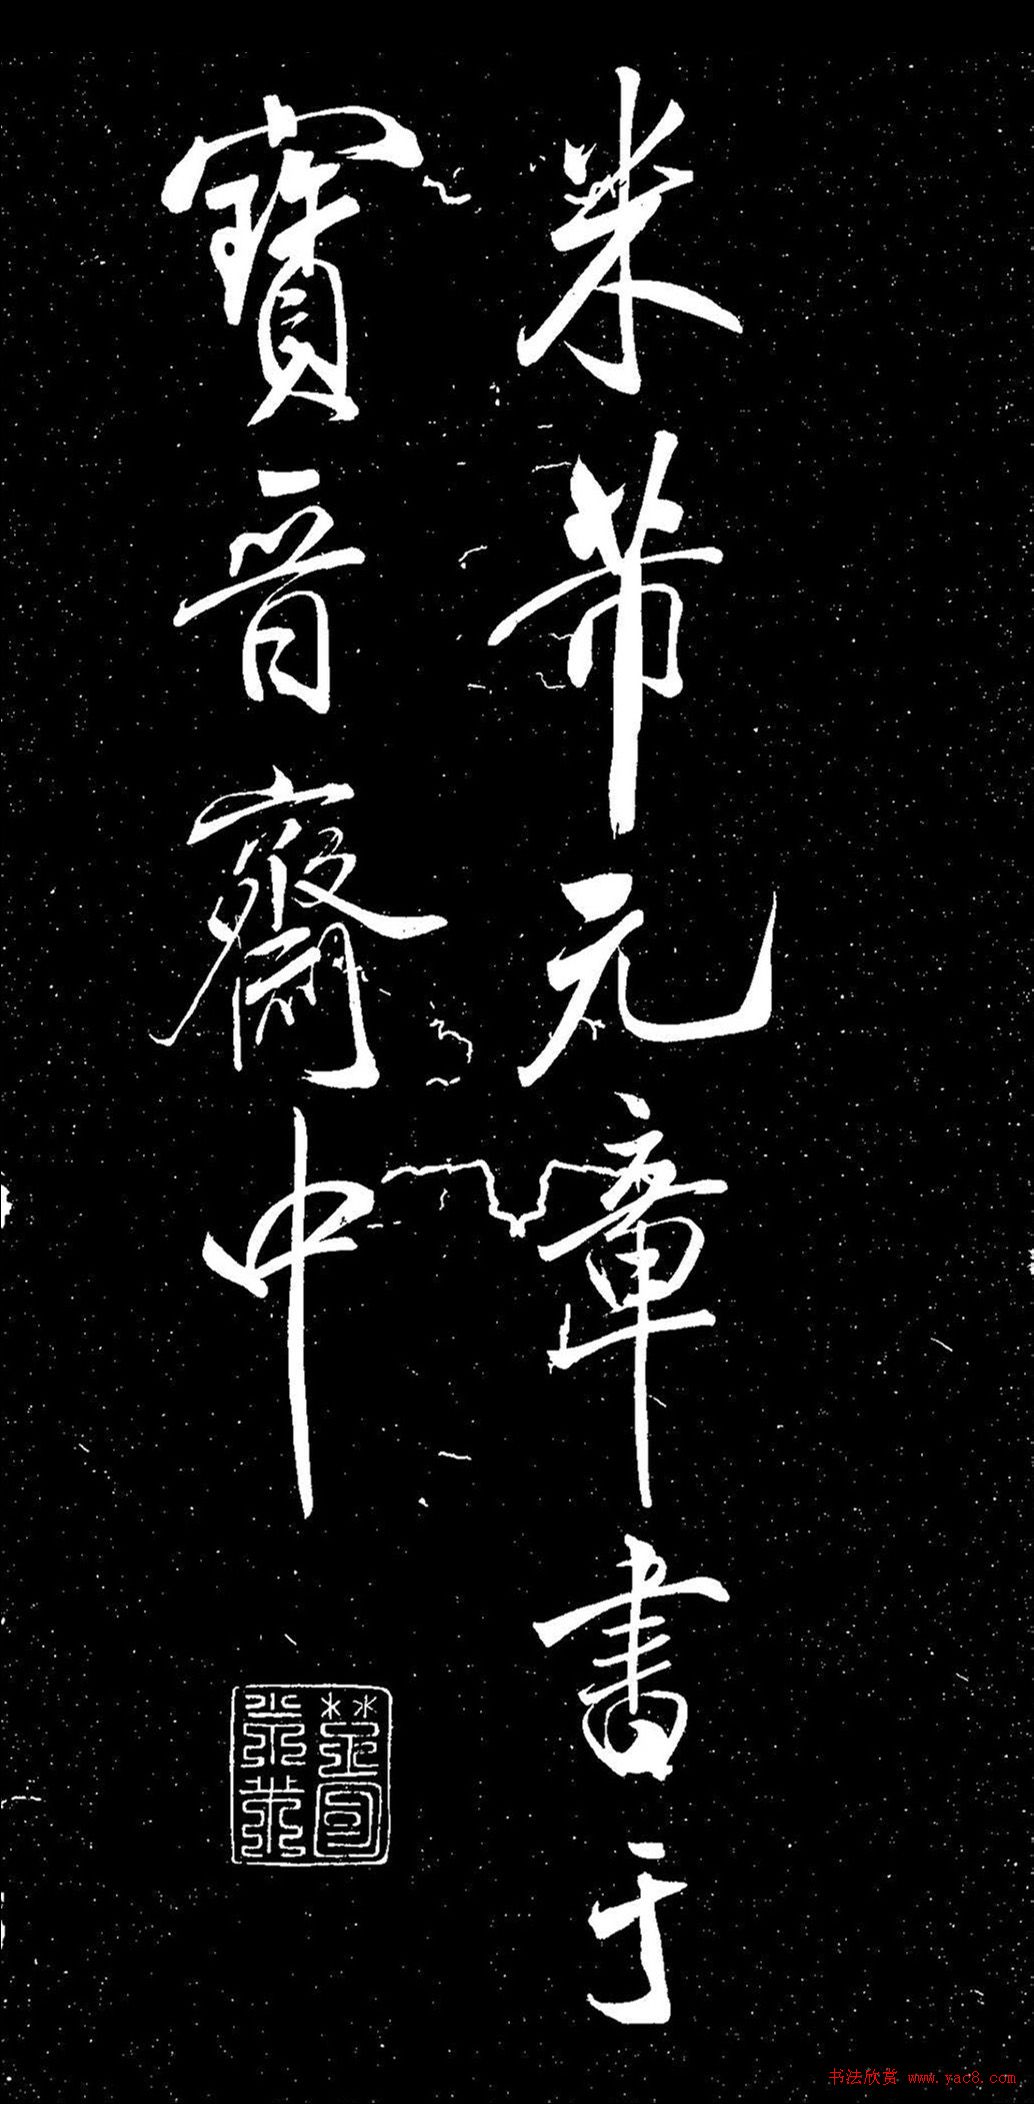 米芾元章書于
寶晉齋中
书法欣赏 www.yac8.com